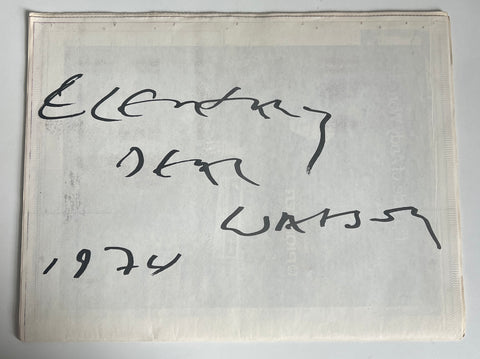 ELEMENTARY
DEAR
WATSON
1974